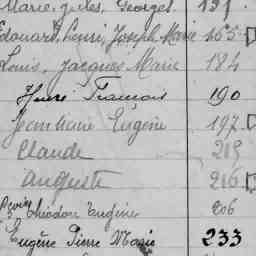 Marie, Jules, Georges. 131
Edouard, Henri, Joseph Marie 163
Louis, Jacques Marie 184
Henri François 190
Jean Marie Eugène 197
Claude 205
Auguste 216
Théodore Eugène 206
Eugène Pierre Marie 233